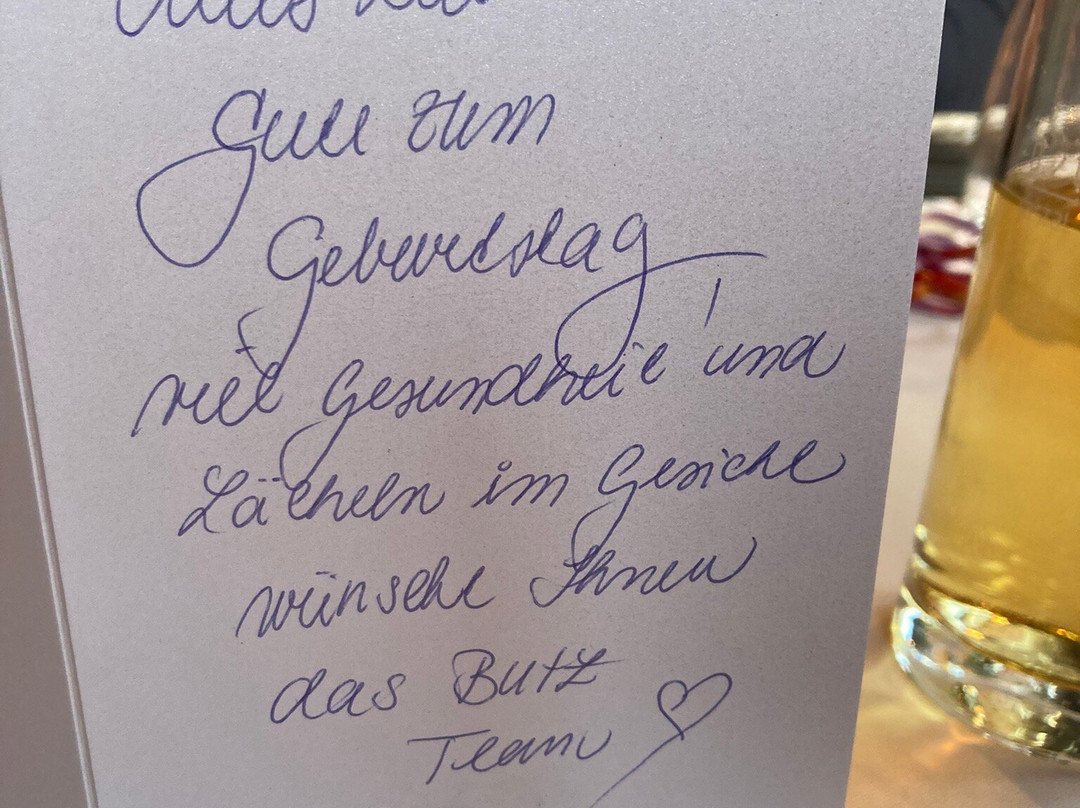 Alles
Gute zum
Geburtstag
viel Gesundheit und
Lächeln im Gesicht
wünscht Ihnen
das Butz
Team